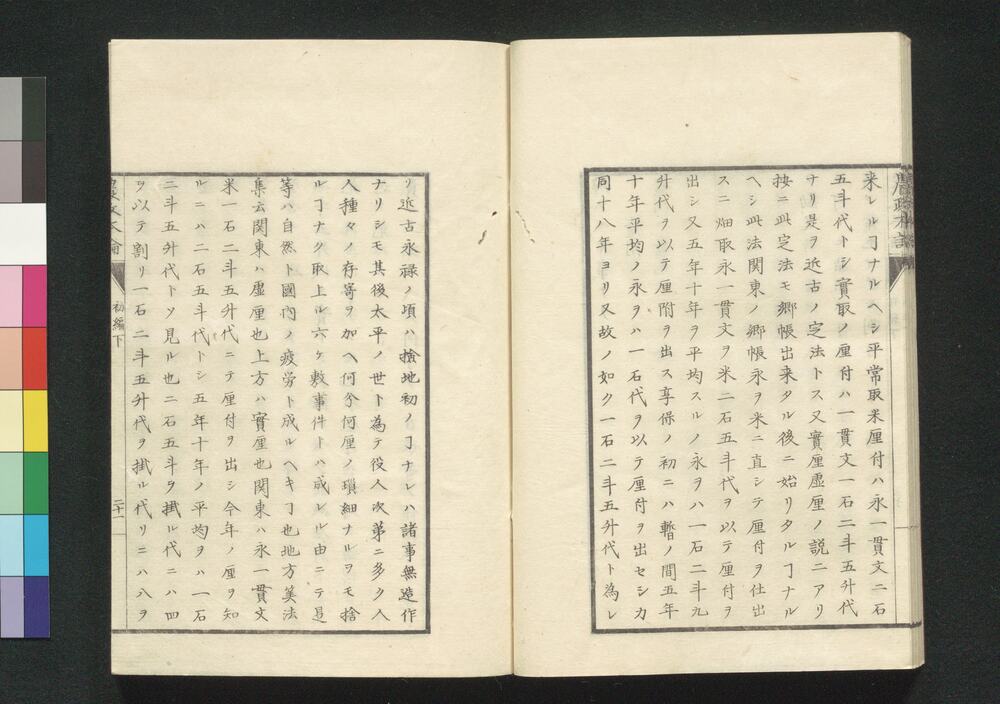 来レルヿナルヘシ平常取米厘付ハ永一貫文二石
五斗代トシ實取ノ厘付ハ一貫文一石二斗五升代
ナリ是ヲ近古ノ定法トス又實厘虚厘ノ説ニアリ
按ニ此定法モ郷帳出来タル後ニ始リタルヿナル
ヘシ此法関東ノ郷帳永ヲ米ニ直シテ厘付ヲ仕出
スニ畑取永一貫文ヲ米二石五斗代ヲ以テ厘付ヲ
出シ又五年十年ヲ平均スルノ永ヲハ一石二斗九
升代ヲ以テ厘附ヲ出ス享保ノ初ニハ暫ノ間五年
十年平均ノ永ヲハ一石代ヲ以テ厘付ヲ出セシカ
同十八年ヨリ又故ノ如ク一石二斗五升代ト為レ
リ近古永禄ノ頃ハ撿地初ノヿナレハ諸事無造作
ナリシモ其後太平ノ世ト為テ役人次第ニ多ク入
人種々ノ存寄ヲ加ヘ何分何厘ノ瑣細ナルヲモ捨
ルヿナク取上ル六ケ敷事件トハ成レル由ニテ是
等ハ自然ト國内ノ疲労ト成ルヘキヿ也地方美法
集云関東ハ虚厘也上方ハ實厘也関東ハ永一貫文
米一石二斗五升代ニテ厘付ヲ出シ今年ノ厘ヲ知
ルニハ二石五斗代トシ五年十年ノ平均ヲハ一石
二斗五升代トソ見ル也二石五斗ヲ掛ル代ニハ四
ヲ以テ割リ一石二斗五升代ヲ掛ル代リニハ八ヲ
初編下
二十一